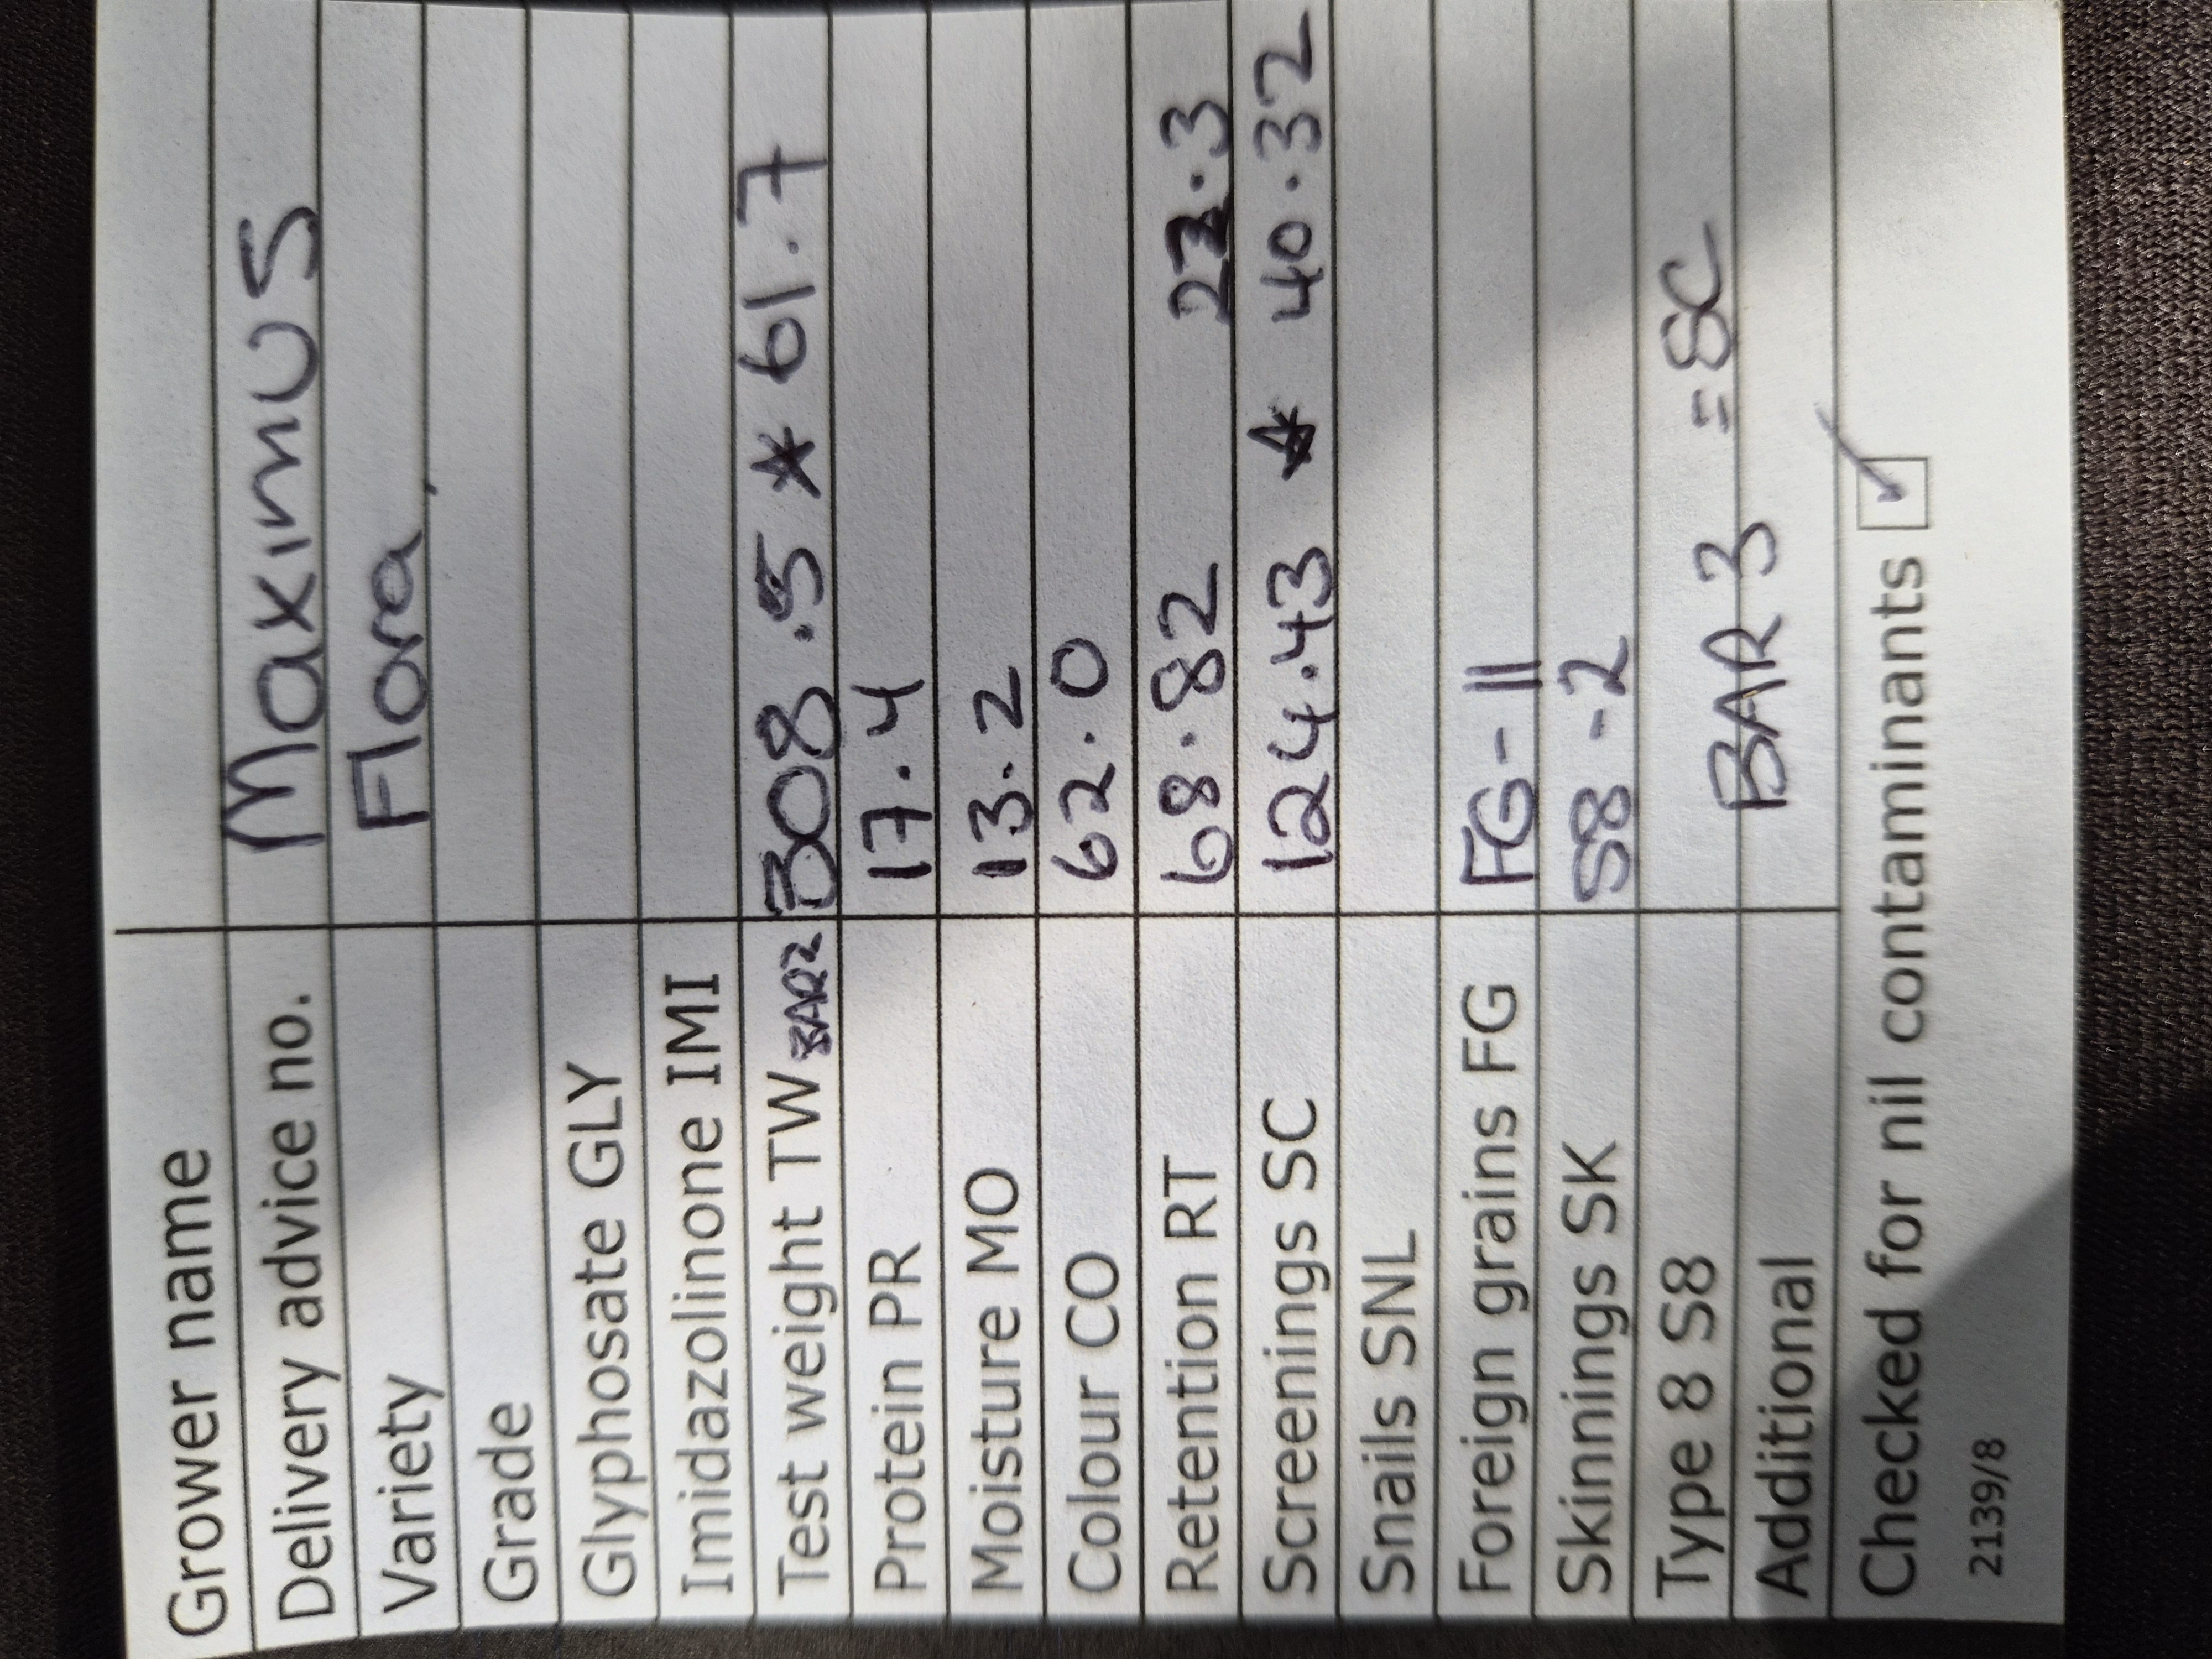 Grower name
Delivery advice no. Maximus
Variety Flora
Grade
Glyphosate GLY
Imidazolinone IMI
Test weight TW BAR2 308.5 * 61.7
Protein PR 17.4
Moisture MO 13.2
Colour CO 62.0
Retention RT 68.82 22.3
Screenings SC 124.43 * 40.32
Snails SNL
Foreign grains FG FG-11
Skinnings SK S8-2
Type 8 S8 =SC
Additional BAR 3
Checked for nil contaminants ✓
2139/8